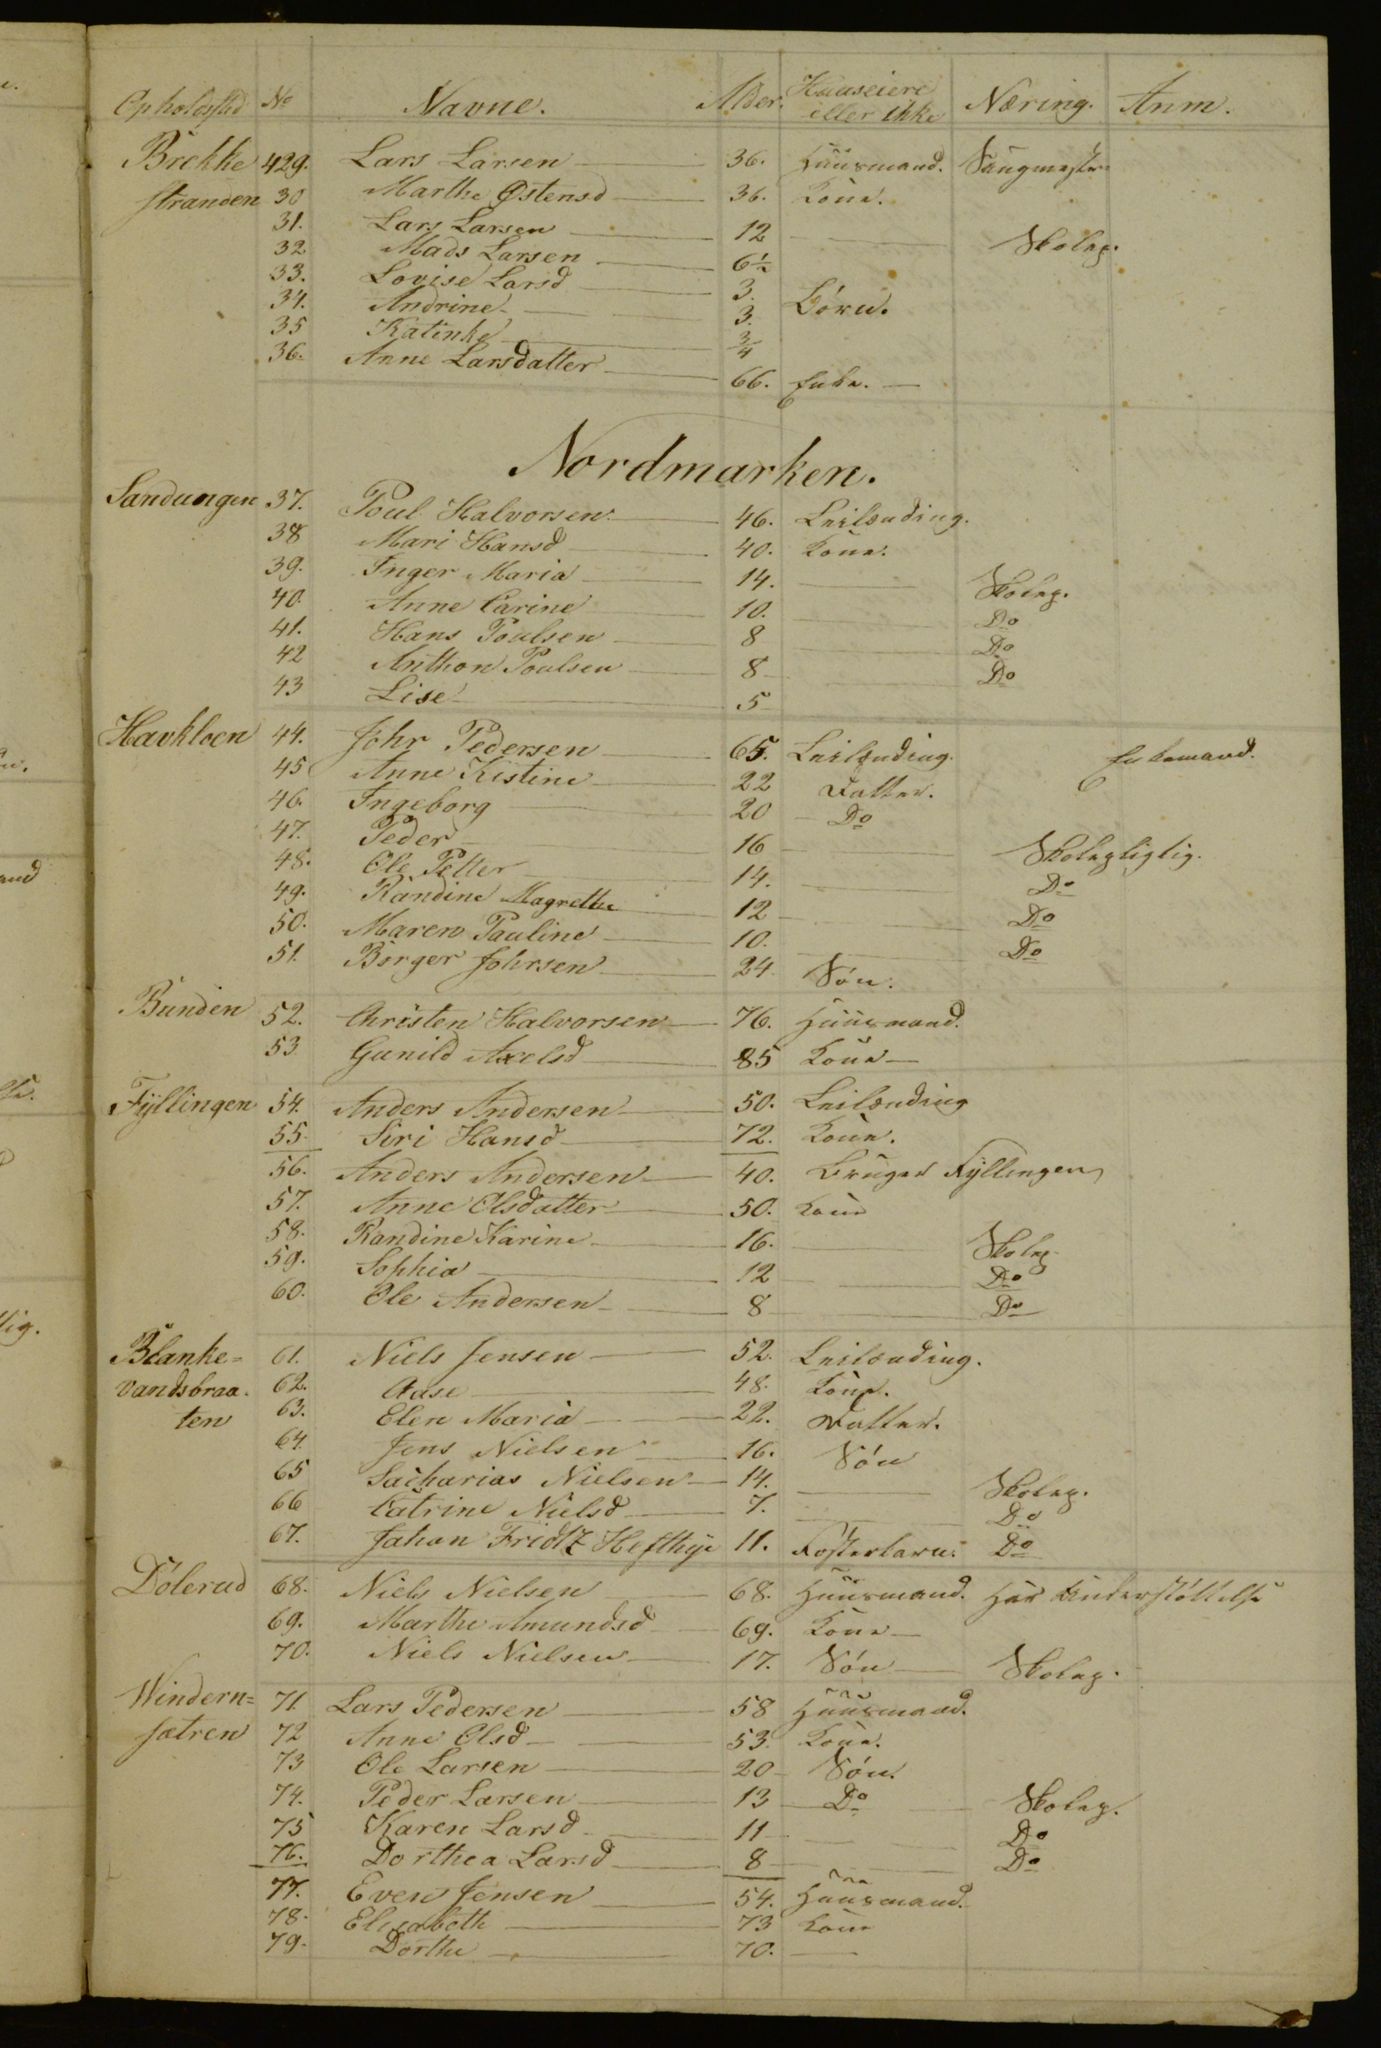 Opholdsstad No Navne. Alder. Huuseiere eller ikke Næring. Anm.
Brekke 429. Lars Larsen 36. Huusmand. Saugmester
stranden 30 Marthe Østensd 36. Kone.
31. Lars Larsen 12 Skolep.
32 Mads Larsen 6½
33. Lovise Larsd 3.
34. Andrine 3. Börn.
35 Katinke 3/4
36. Anne Larsdatter 66. Enke.
Nordmarken.
Sandungen 37. Poul Halvorsen 46. Leilending.
38 Mari Hansd 40. Kone.
39. Inger Maria 14. Skolep.
40. Anne Carine 10. Do
41. Hans Poulsen 8 Do
42 Anthon Poulsen 8 Do
43 Lise 5
Havkloen 44. Johr Pedersen 65. Leilending. Enkemand.
45 Anne Kistine 22 Datter.
46. Ingeborg 20 Do
47. Peder 16 Skolepligtig.
48. Ole Petter 14. Do
49. Randine Magrethe 12 Do
50. Maren Pauline 10. Do
51. Børger Johrsen 24 Sön.
Bunden 52. Christen Halvorsen 76. Huusmand.
53 Gunild Axelsd 85 Kone
Fyllingen 54. Anders Andersen 50. Leilending
55. Siri Hansd 72. Kone.
56. Anders Andersen 40. Bruger Fyllingen
57. Anne Olsdatter 50. Kone
58. Randine Karine 16. Skolep
59. Sophia 12 Do
60. Ole Andersen 8 Do
Blanke= 61. Niels Jensen 52. Leilending.
vandsbraa. 62. Aase 48. Kone.
ten 63. Elen Maria 22. Datter.
64. Jens Nielsen 16. Sön
65 Sacharias Nielsen 14. Skolep.
66 Catrine Nielsd 7. Do
67. Johan Fridtz Hefthye 11. Fosterbarn. Do
Dölerud 68. Niels Nielsen 68. Huusmand. Har Understöttelse
69. Marthe Amundsd 69. Kone
70. Niels Nielsen 17. Sön Skolep.
Windern= 71. Lars Pedersen 58 Huusmand.
sætren 72 Anne Olsd 53. Kone.
73 Ole Larsen 20 Sön.
74. Peder Larsen 13 Do Skolep.
75 Karen Larsd 11 Do
76. Dorthea Larsd 8 Do
77. Even Jensen 54. Huusmand.
78. Elisabeth 73 Kone
79. Dorthe 70.